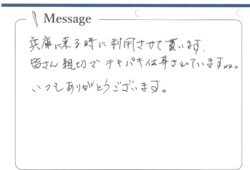 Message
兵庫に来る時に利用させて貰います。
皆さん親切でテキパキは年されていますね。
いつもありがとうございます。